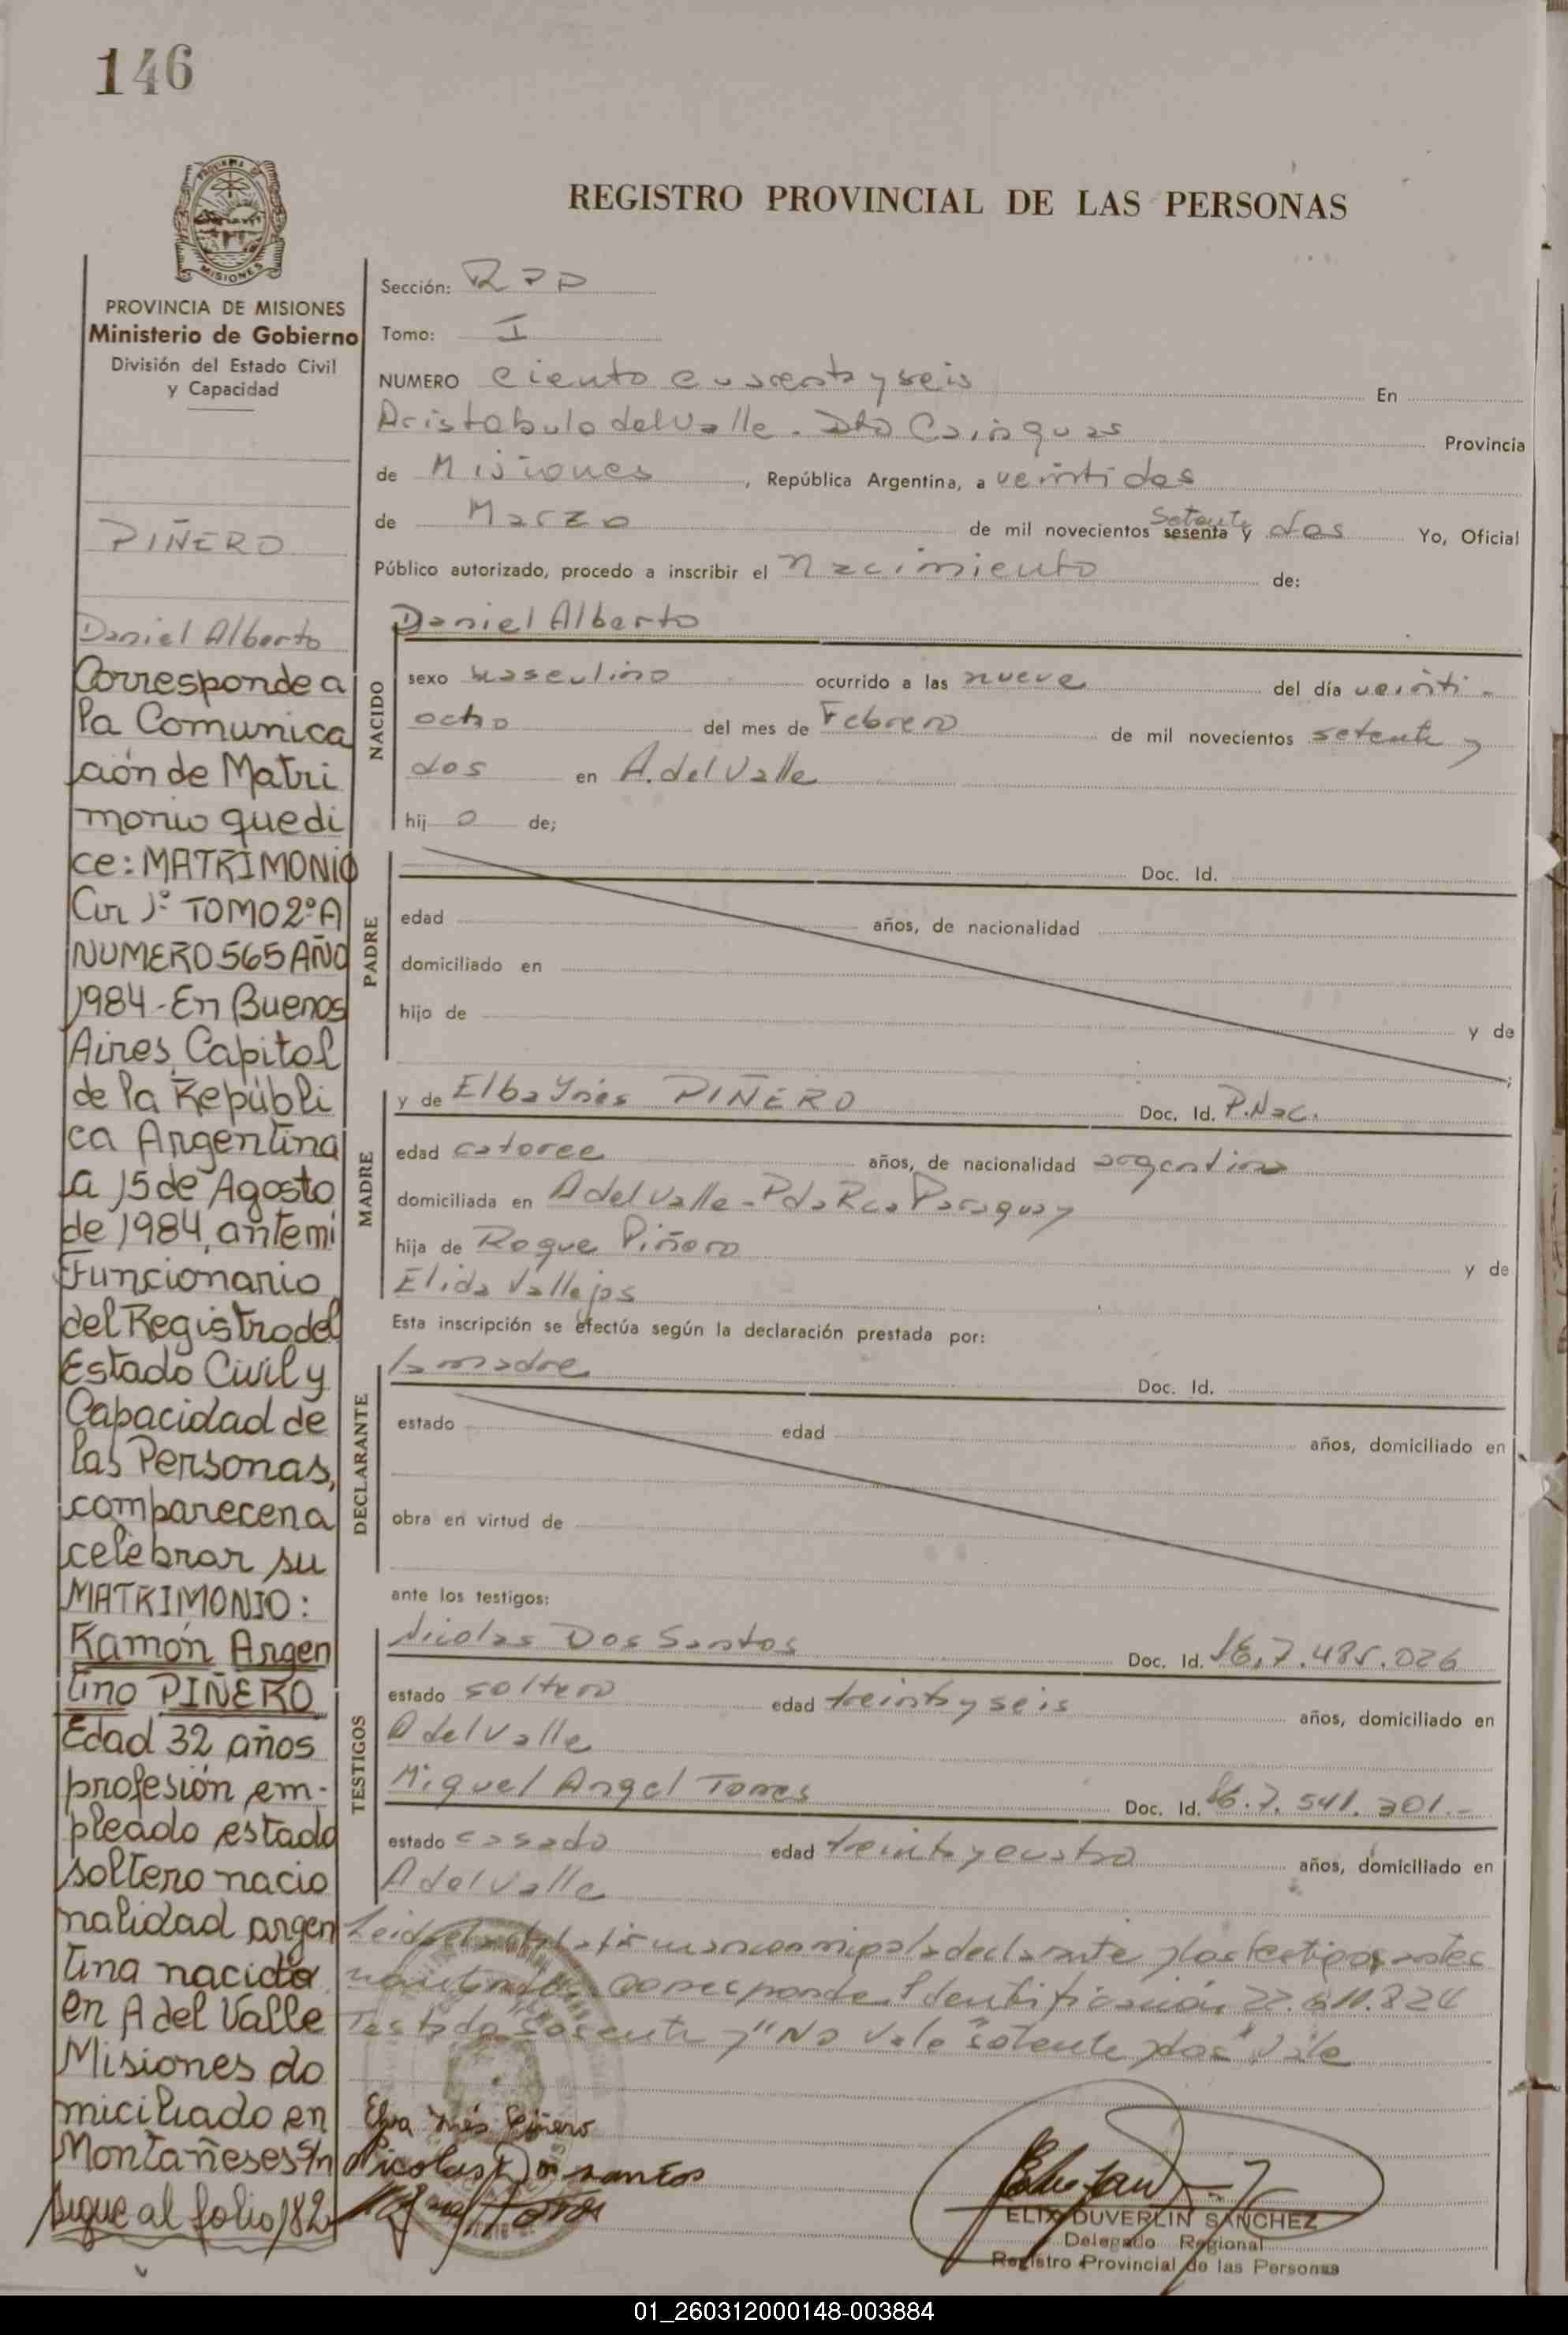 146
PROVINCIA DE
MISIONES
PROVINCIA DE MISIONES
Ministerio de Gobierno
División del Estado Civil
y Capacidad
PIÑERO
Daniel Alberto
Corresponde a
la Comunica
ción de Matri
monio que di
ce: MATRIMONIO
Cir 1º TOMO 2º A
NUMERO 565 AÑO
1984 - En Buenos
Aires, Capital
de la Repúbli
ca Argentina
a 15 de Agosto
de 1984, ante mi
Funcionario
del Registro del
Estado Civil y
Capacidad de
las Personas,
comparecen a
celebrar su
MATRIMONIO:
Ramón Argen
tino PIÑERO
Edad 32 años
profesión em-
pleado estado
soltero nacio
nalidad argen
tina nacido
en A del Valle
Misiones do
miciliado en
Montañeses S/n
sigue al folio 182
REGISTRO PROVINCIAL DE LAS PERSONAS
Sección:
Tomo: I
NUMERO ciento cuarenta y seis En
Aristobulo del Valle - Dto Cainguas Provincia
de Misiones, República Argentina, a veintidos
de Marzo de mil novecientos sesenta y setenta y dos Yo, Oficial
Público autorizado, procedo a inscribir el nacimiento de:
Daniel Alberto
NACIDO
sexo masculino ocurrido a las nueve del día veinti-
ocho del mes de Febrero de mil novecientos setenta y
dos en A. del Valle
hij o de;
PADRE
Doc. Id.
edad años, de nacionalidad
domiciliado en
hijo de y de
MADRE
y de Elba Ynés PIÑERO Doc. Id. P.Nac.
edad catorce años, de nacionalidad argentina
domiciliada en A del Valle - Pda Rca Paraguay
hija de Roque Piñero y de
Elida Vallejos
Esta inscripción se efectúa según la declaración prestada por:
DECLARANTE
la madre Doc. Id.
estado edad años, domiciliado en
obra en virtud de
ante los testigos:
TESTIGOS
Nicolas Dos Santos Doc. Id. 7.485.026
estado soltero edad treinta y seis años, domiciliado en
A del Valle
Miguel Angel Torres Doc. Id. 7.541.301.-
estado casado edad treinta y cuatro años, domiciliado en
A del Valle
Leida el acta la firman conmigo la declarante y los testigos antes
corresponde Identificación 22.611.824
Testado sesenta y "No Vale" setenta y dos" Vale
Elva Inés Piñero
Nicolas Dos santos
ELIX DUVERLIN SANCHEZ
Delegado Regional
Registro Provincial de las Personas
01_260312000148-003884